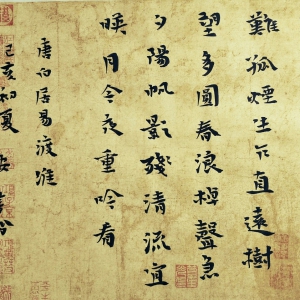 難孤煙生乍直遠樹
望多圓春浪棹聲急
夕陽帆影殘清流宜
暎月今夜重吟看
唐白居易渡淮
己亥初夏